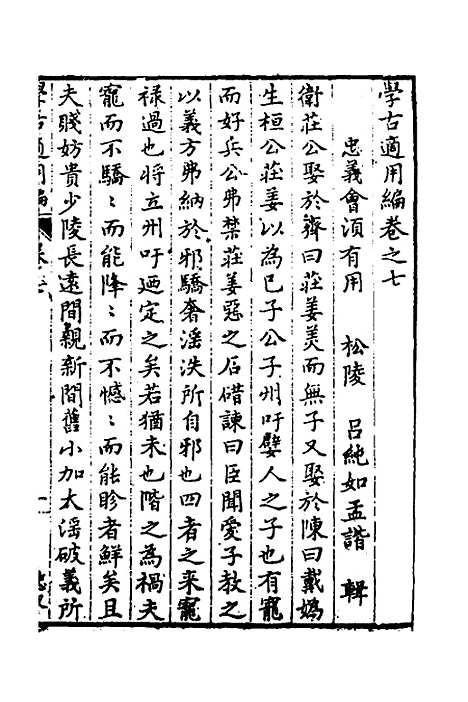 學古適用編卷之七
忠義會須有用 松陵 呂純如孟諧 輯
衛莊公娶於齊曰莊姜美而無子又娶於陳曰戴媯
生桓公莊姜以為已子公子州吁嬖人之子也有寵
而好兵公弗禁莊姜惡之石碏諫曰臣聞愛子教之
以義方弗納於邪驕奢淫泆所自邪也四者之来寵
禄過也将立州吁廼定之矣若猶未也階之為禍夫
寵而不驕〻而能降〻而不憾〻而能眕者鮮矣且
夫賤妨貴少陵長遠間親新間舊小加大淫破義所
學古適用編 卷之七 一